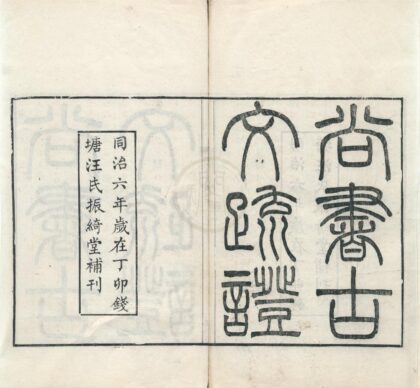 尚書古
文疏證
同治六年歲在丁卯錢
塘汪氏振綺堂補刊